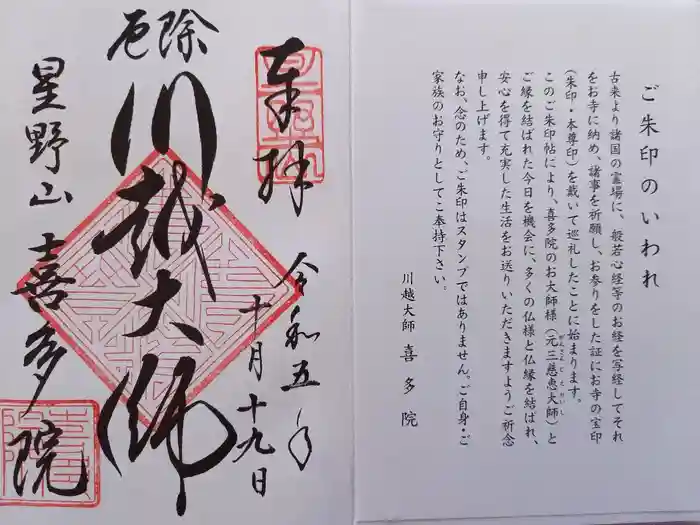 ご朱印のいわれ
古来より諸国の霊場に、般若心経等のお経を写経してそれ
をお寺に納め、諸事を祈願し、お参りをした証にお寺の宝印
(朱印・本尊印)を戴いて巡礼したことに始まります。
このご朱印帖により、喜多院のお大師様(元三慈恵大師)と
ご縁を結ばれた今日を機会に、多くの仏様と仏縁を結ばれ、
安心を得て充実した生活をお送りいただきますようご祈念
申し上げます。
なお、念のため、ご朱印はスタンプではありません。ご自身・ご
家族のお守りとしてご奉持下さい。
川越大師 喜多院
奉拝
令和五年
十月十九日
厄除
川越大師
星野山 喜多院